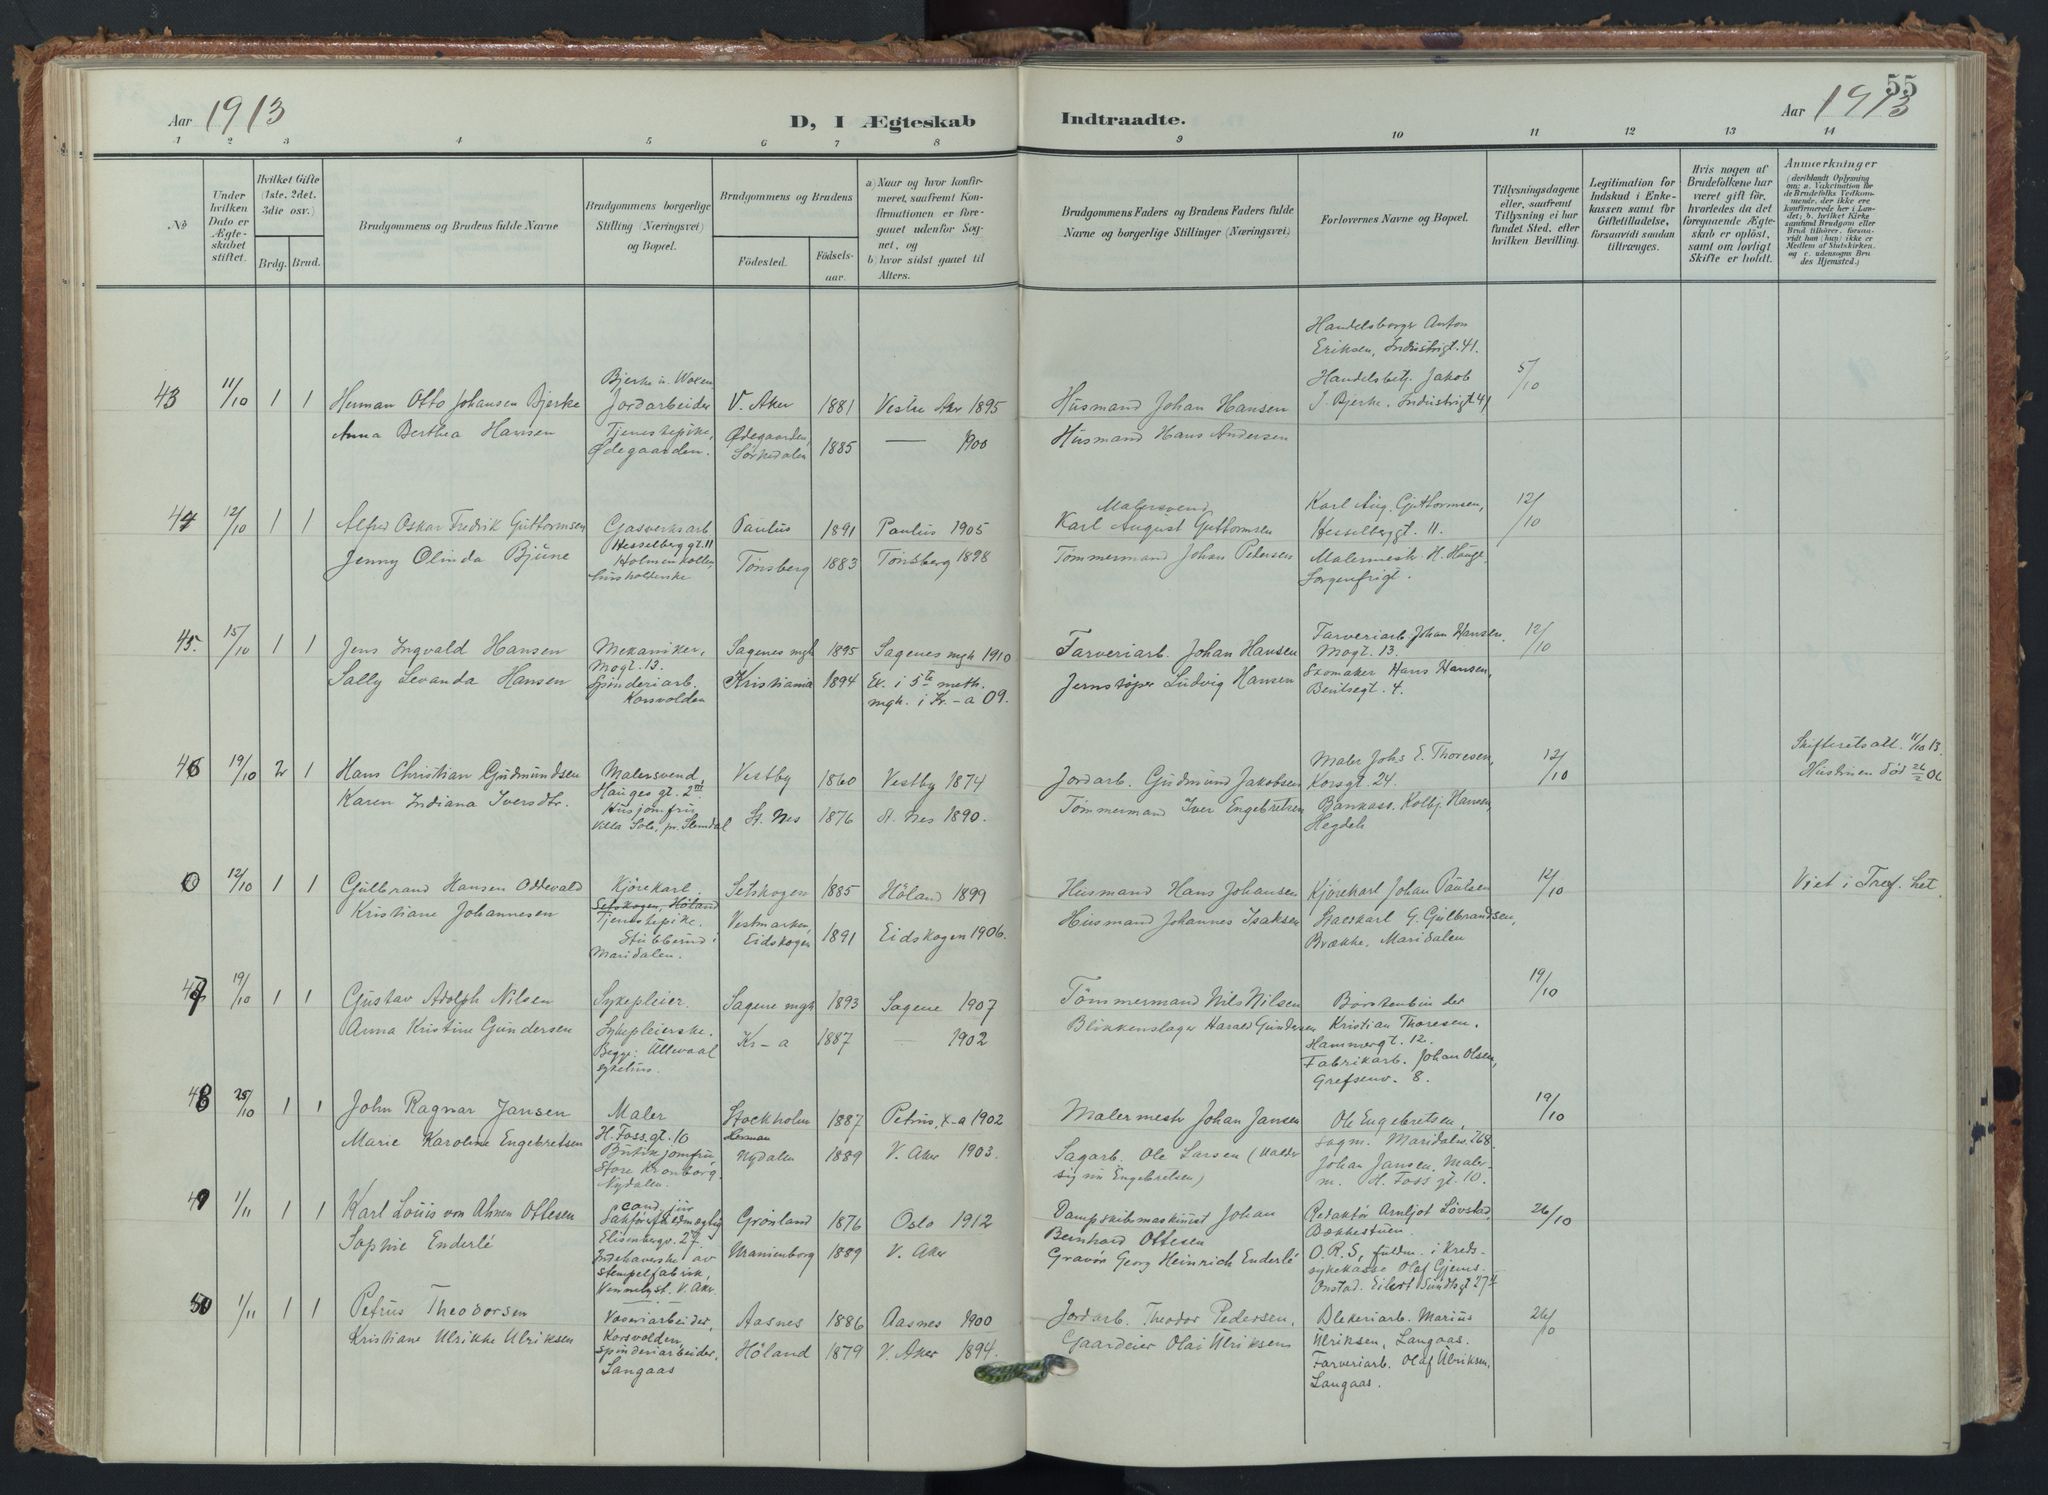 Aar 1913
D, I Ægteskab
Indtraadte.
55
Aar 1913
1 2 3 4 5 6 7 8 9 10 11 12 13 14
No
Under hvilken Dato er Ægteskabet stiftet.
Hvilket Gifte (1ste, 2det, 3die osv.)
Brdg. Brud.
Brudgommens og Brudens fulde Navne
Brudgommens borgerlige Stilling (Næringsvei) og Bopæl.
Brudgommens og Brudens
Födested.
Födselsaar.
a) Naar og hvor konfirmeret, saafremt Konfirmationen er foregaaet udenfor Sognet, og
b) hvor sidst gaaet til Alters.
Brudgommens Faders og Brudens Faders fulde Navne og borgerlige Stillinger (Næringsvei)
Forlovernes Navne og Bopæl.
Tillysningsdagene eller, saafremt Tillysning ei har fundet Sted, efter hvilken Bevilling.
Legitimation for Indskud i Enkekassen samt for Giftetilladelse, forsaavidt saadan tiltrænges.
Hvis nogen af Brudefolkene har været gift för, hvorledes da det foregaaende Ægteskab er oplöst, samt om lovligt Skifte er holdt.
Anmærkninger
(deriblandt Oplysning om: a. Vakcination for de Brudefolks Vedkommende, der ikke ere konfirmerede her i Landet; b. hvilket Kirkesamfund Brudgom eller Brud tilhörer, forsaavidt han (hun) ikke er Medlem af Statskirken, og c. udensogns Brudes Hjemsted.)
43 11/10 1 1 Herman Otto Johansen Bjerke
Bjerke u. Woxen
Jordarbeider V. Aker 1881 Vestre Aker 1895
Husmand Johan Hansen
Handelsborger Anton
Eriksen, Industrigt. 41.
Handelsbetj. Jakob
J. Bjerke, Industrigt. 41
5/10
Anna Berthea Hansen
Tjenestepike,
Ødegaarden.
Ødegaarden,
Sørkedalen 1885 — 1900
Husmand Hans Andersen
44 12/10 1 1 Alfred Oskar Fredrik Guttormsen
Gasverksarb.
Hesselberg gt. 11
Paulus 1891 Paulus 1905
Malersvend
Karl August Guttormsen
Karl Aug. Guttormsen,
Hesselberggt. 11.
12/10
Jenny Olinda Bjune
Holmenkollen,
husholderske
Tönsberg 1883 Tönsberg 1898
Tömmermand Johan Pedersen
Malermestr. H. Hauge
Sorgenfrigt.
45. 15/10 1 1 Jens Ingvald Hansen
Mekaniker,
Mogt. 13.
Sagenes mgh 1895 Sagenes mgh 1910
Farveriarb. Johan Hansen
Farveriarb. Johan Hansen,
Mogt. 13.
12/10
Sally Levanda Hansen
Spinderiarb.
Korsvolden
Kristiania 1894 Ex. i 5te meth.
mgh. i Kr-a 09.
Jernstöper Ludvig Hansen
Skomaker Hans Hansen,
Bentsegt. 4.
46 19/10 2 1 Hans Christian Gudmundsen
Malersvend,
Hauges gt. 2III
Vestby 1860 Vestby 1874
Jordarb. Gudmund Jakobsen
Maler Johs E. Thoresen,
Korsgt. 24.
12/10
Skifteretsatt. 11/10 13.
Hustruen död 26/2 06
Karen Indiana Iversdtr.
Husjomfru
Villa Solb., pr. Slemdal
St. Nes 1876 St. Nes 1890.
Tömmermand Iver Engebretsen
Bankass. Kolbj. Hansen,
0 12/10 1 1 Gulbrand Hansen Oddevald
Kjörekarl.
Setskogen, Höland
Setskogen 1885 Höland 1899
Husmand Hans Johansen
Kjörekarl Johan Paulsen
12/10
Viet i Tref. ket.
Kristiane Johannesen
Tjenestepike.
Maridalen.
Vestmarken,
Eidskogen 1891 Eidskogen 1906.
Husmand Johannes Isaksen
G. Gulbrandsen,
Brække, Maridalen
47 19/10 1 1 Gustav Adolph Nilsen
Sykepleier.
Sagene mgh 1893 Sagene 1907
Tömmermand Nils Nilsen
Börstenbinder
Kristian Thoresen.
Hammergt. 12.
19/10
Anna Kristine Gundersen
Sykepleierske.
Begge: Ullevaal
sykehus.
Kr-a 1887 — 1902
Blikkenslager Harald Gundersen
Fabrikarb. Johan Olsen,
Grefsenv. 8.
48 25/10 1 1 John Ragnar Jansen
Maler
H. Foss gt. 10
Stockholm 1887 Petrus, K-a 1902
Malermestr Johan Jansen
Ole Engebretsen,
sagm. Maridalsv. 268.
19/10
Marie Karoline Engebretsen
Butikjomfru
Store Kronborg,
Nydalen.
Nydalen 1889 V. Aker 1903.
Sagarb. Ole Larsen (kalder
sig nu Engebretsen)
Johan Jansen. Maler-
m. H. Foss gt. 10.
49 1/11 1 1 Karl Louis von Ahnen Ottesen
cand. jur
Elisenbergv. 27.
Grönland 1876 Oslo 1912
Dampskibsmaskinist Johan
Bernhard Ottesen
Redaktör Arnljot Lövstad,
Bækkestuen.
26/10
Sophie Enderlé
Indehaverske av
stempelfabrik,
Vennelyst. V. Aker.
Uranienborg 1889 V. Aker
Gravör Georg Heinrich Enderlé
O.R.S, fuldm. i Kreds-
sykekasse Olaf Gjems-
Onstad. Eilert Sundtsgt 27 II
50 1/11 1 1 Petrus Theodorsen
Væveriarbeider,
Korsvolden,
Aasnes 1886 Aasnes 1900
Jordarb. Theodor Pedersen,
Blekeriarb. Marius
Ulriksen, Langaas.
26/10
Kristiane Ulrikke Ulriksen
spinderiarbeider,
Langaas
Höland 1879 V. Aker 1894.
Gaardeier Olai Ulriksen
Farveriarb. Olaf Ulriksen,
Langaas.